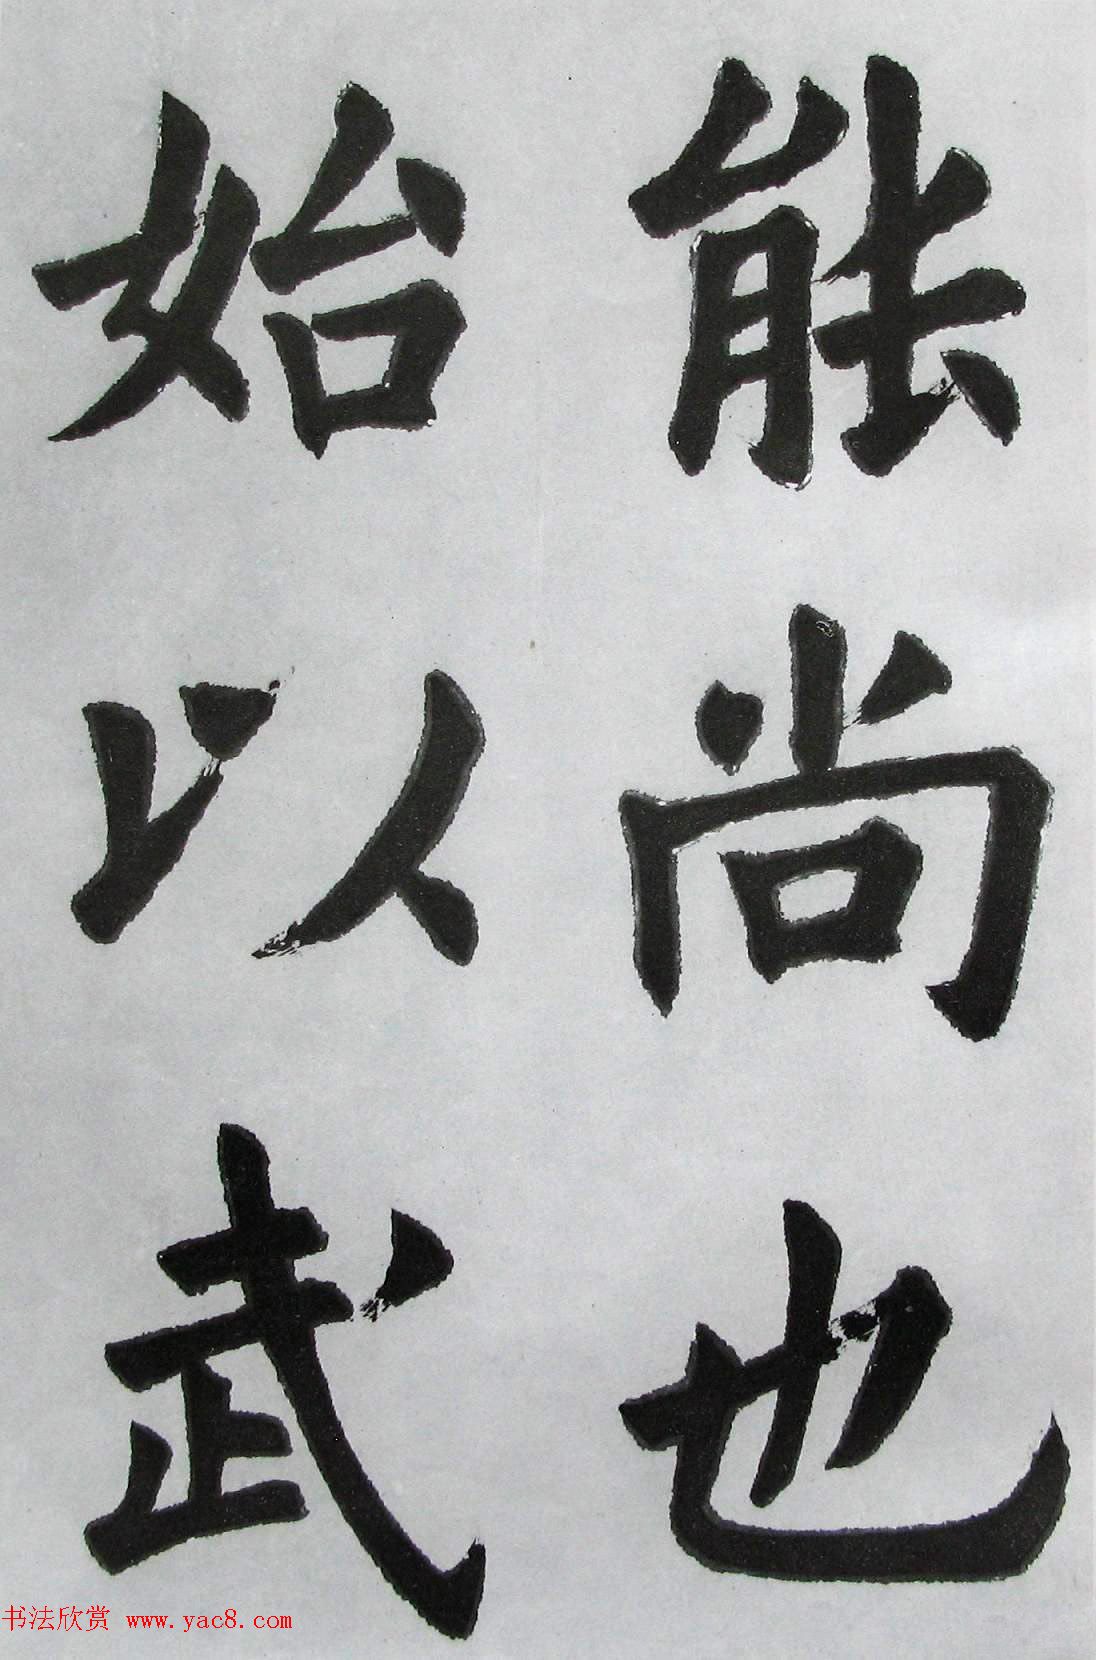 能尚也
始以武
书法欣赏 www.yac8.com